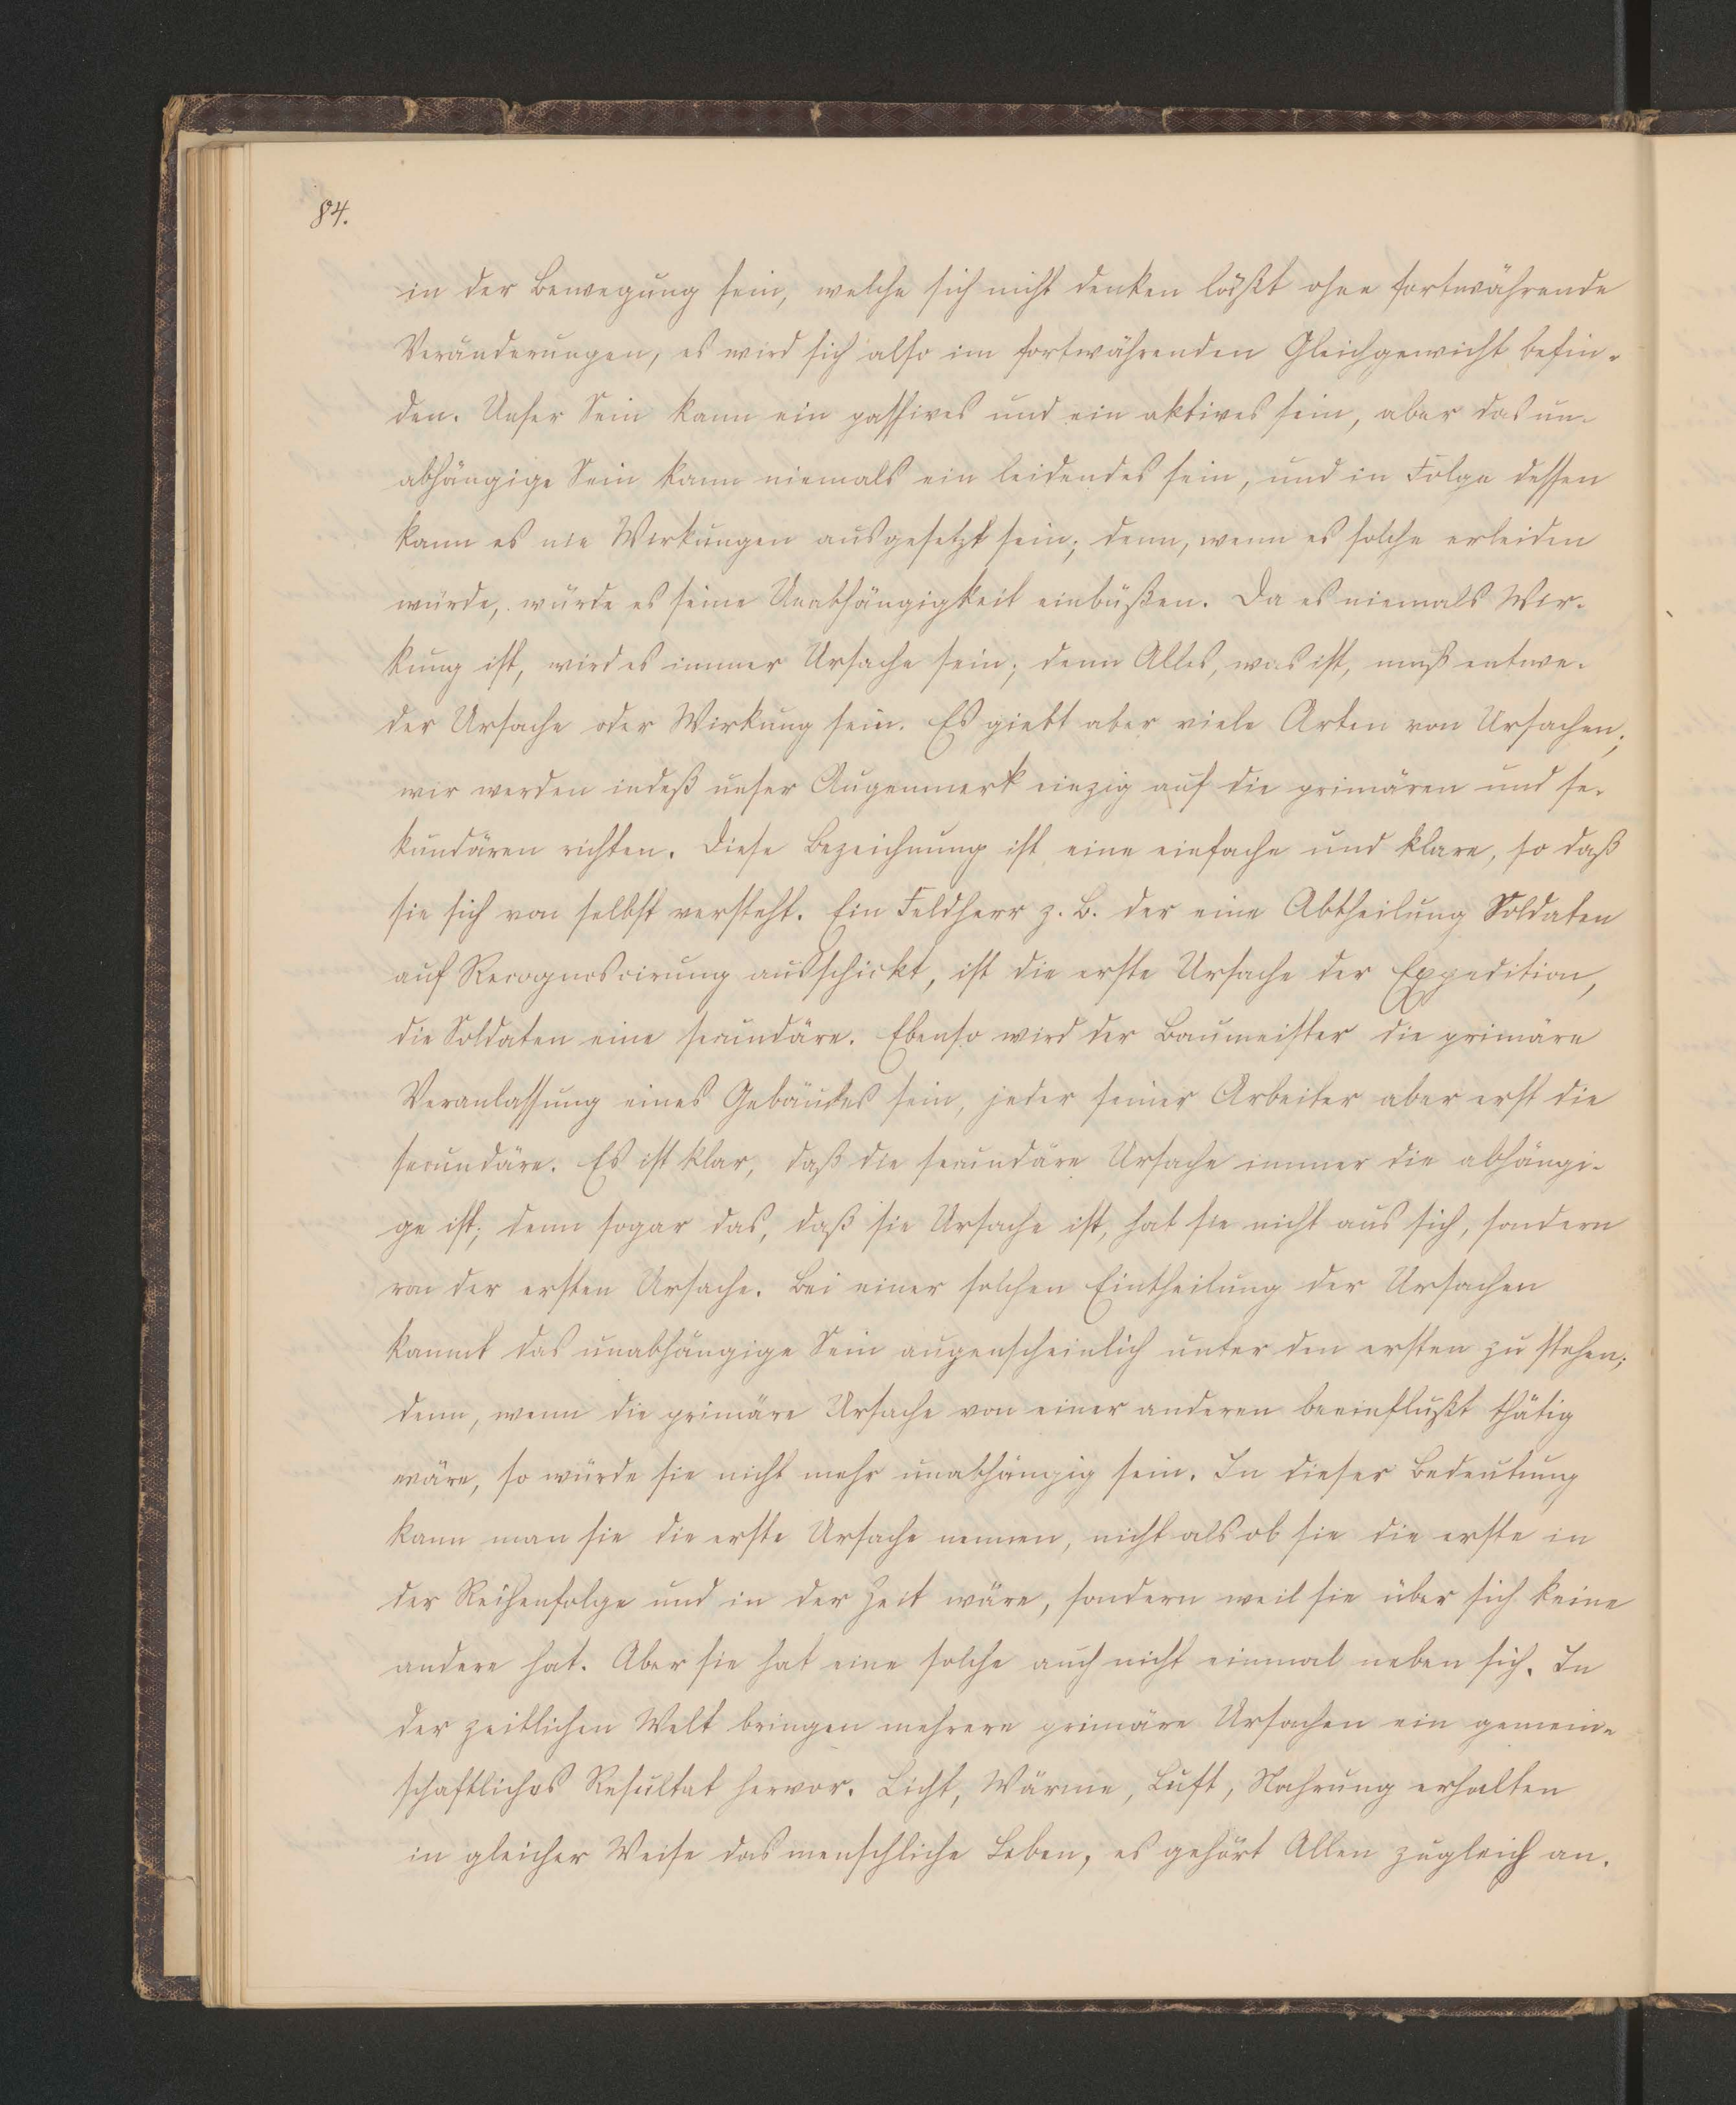 84.
in der Bewegung sein, welche sich nicht denken läßt ohne fortwährende
Veränderungen, es wird sich also im fortwährenden Gleichgewicht befin-
den. Unser Sein kann ein passives und ein aktives sein, aber das un-
abhängige Sein kann niemals ein leidendes sein, und in Folge dessen
kann es nie Wirkungen ausgesetzt sein; denn, wenn es solche erleiden
würde, würde es seine Unabhängigkeit einbüßen. Da es niemals Wir-
kung ist, wird es immer Ursache sein; denn Alles, was ist, muß entwe-
der Ursache oder Wirkung sein. Es giebt aber viele Arten von Ursachen;
wir werden indeß unser Augenmerk einzig auf die primären und se-
kundären richten. Diese Bezeichnung ist eine einfache und klare, so daß
sie sich von selbst versteht. Ein Feldherr z. B. der eine Abtheilung Soldaten
auf Recognoscirung ausschickt, ist die erste Ursache der Expedition,
die Soldaten eine secundäre. Ebenso wird der Baumeister die primäre
Veranlassung eines Gebäudes sein, jeder seiner Arbeiter aber erst die
secundäre. Es ist klar, daß die secundäre Ursache immer die abhängi-
ge ist; denn sogar das, daß sie Ursache ist, hat sie nicht aus sich, sondern
von der ersten Ursache. Bei einer solchen Eintheilung der Ursachen
kommt das unabhängige Sein augenscheinlich unter den ersten zu stehen;
denn, wenn die primäre Ursache von einer anderen beeinflußt thätig
wäre, so würde sie nicht mehr unabhängig sein. In dieser Bedeutung
kann man sie die erste Ursache nennen, nicht als ob sie die erste in
der Reihenfolge und in der Zeit wäre, sondern weil sie über sich keine
andere hat. Aber sie hat eine solche auch nicht einmal neben sich. In
der zeitlichen Welt bringen mehrere primäre Ursachen ein gemein-
schaftliches Resultat hervor. Licht, Wärme, Luft, Nahrung erhalten
in gleicher Weise das menschliche Leben, es gehört Allen zugleich an.